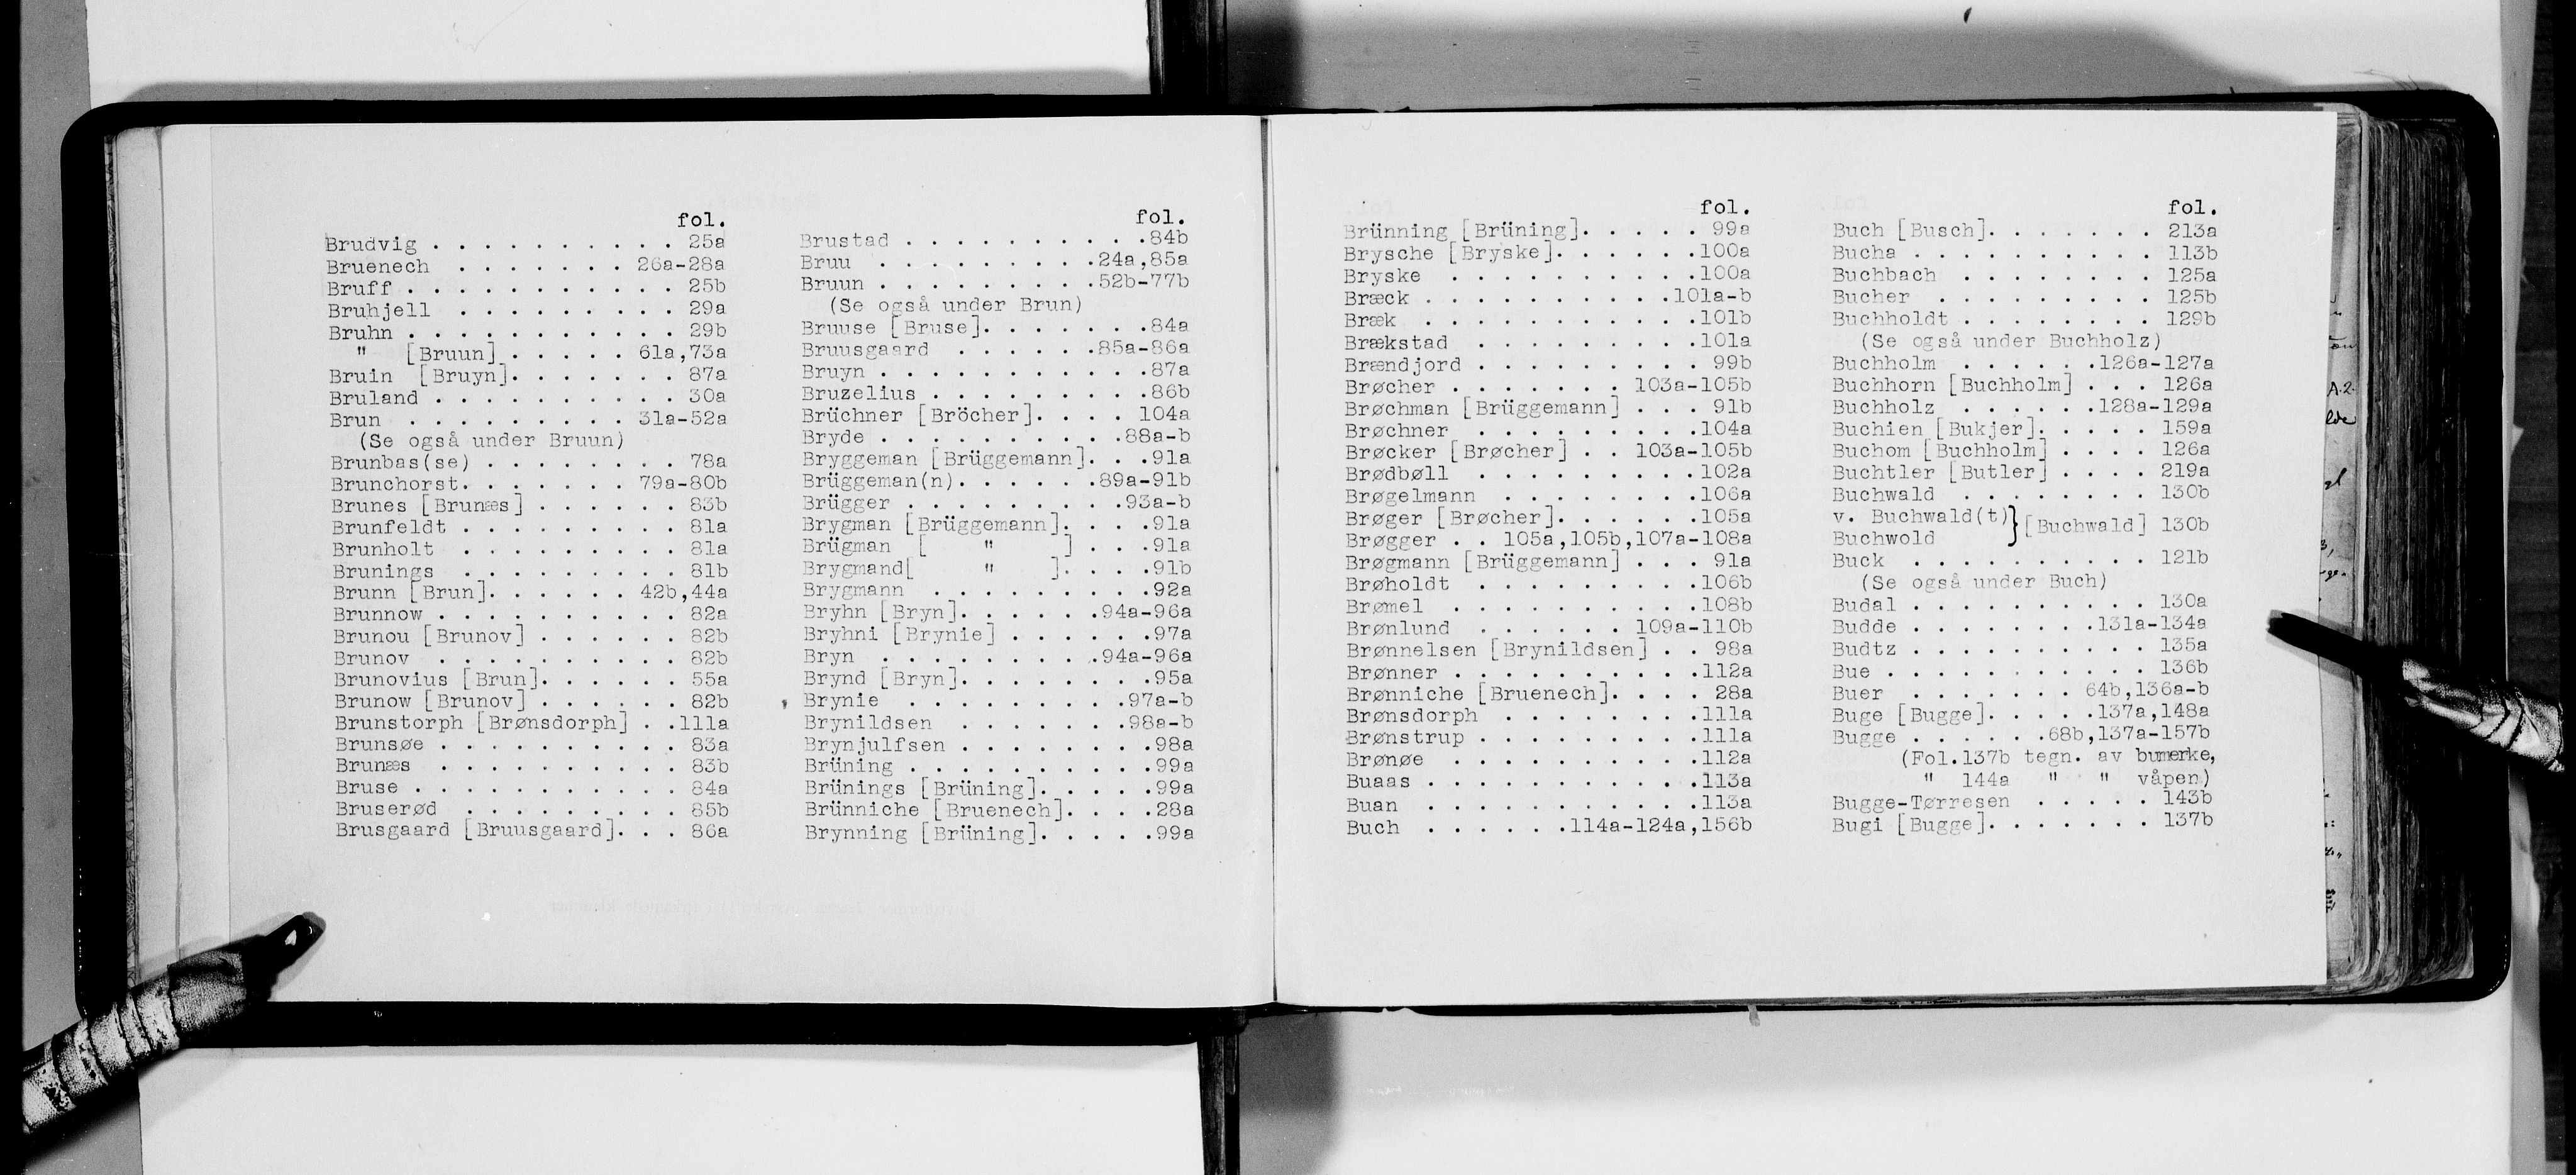 fol.
Brudvig . . . . . . . . . . . 25a
Bruenech . . . . . . . 26a-28a
Bruff . . . . . . . . . . . . 25b
Bruhjell . . . . . . . . . . 29a
Bruhn . . . . . . . . . . . . 29b
" [Bruun] . . . . . 61a,73a
Bruin [Bruyn]. . . . . . . 87a
Bruland . . . . . . . . . . 30a
Brun . . . . . . . . . 31a-52a
(Se også under Bruun)
Brunbas(se) . . . . . . . . 78a
Brunchorst. . . . . . . 79a-80b
Brunes [Brunæs] . . . . . . 83b
Brunfeldt . . . . . . . . . 81a
Brunholt . . . . . . . . . 81a
Brunings . . . . . . . . . 81b
Brunn [Brun]. . . . . . 42b,44a
Brunnow . . . . . . . . . . 82a
Brunou [Brunov] . . . . . . 82b
Brunov . . . . . . . . . . 82b
Brunovius [Brun]. . . . . . 55a
Brunow [Brunov] . . . . . . 82b
Brunstorph [Brønsdorph] . .111a
Brunsøe . . . . . . . . . . 83a
Brunæs . . . . . . . . . . 83b
Bruse . . . . . . . . . . . 84a
Bruserød . . . . . . . . . 85b
Brusgaard [Bruusgaard]. . . 86a
fol.
Brustad . . . . . . . . . .84b
Bruu . . . . . . . . .24a,85a
Bruun . . . . . . . . .52b-77b
(Se også under Brun)
Bruuse [Bruse]. . . . . . .84a
Bruusgaard . . . . . .85a-86a
Bruyn . . . . . . . . . . .87a
Bruzelius . . . . . . . . .86b
Brüchner [Bröcher]. . . . 104a
Bryde . . . . . . . . . .88a-b
Bryggeman [Brüggemann]. . .91a
Brüggeman(n). . . . . .89a-91b
Brügger . . . . . . . . .93a-b
Brygman [Brüggemann]. . . .91a
Brügman [ " ] . . .91a
Brygmand[ " ]. . . .91b
Brygmann . . . . . . . . .92a
Bryhn [Bryn]. . . . . .94a-96a
Bryhni [Brynie] . . . . . .97a
Bryn . . . . . . . . .94a-96a
Brynd [Bryn]. . . . . . . .95a
Brynie . . . . . . . . .97a-b
Brynildsen . . . . . . .98a-b
Brynjulfsen . . . . . . . .98a
Brüning . . . . . . . . . .99a
Brünings [Brüning]. . . . .99a
Brünniche [Bruenech]. . . .28a
Brynning [Brüning]. . . . .99a
fol.
Brünning [Brüning]. . . . . 99a
Brysche [Bryske]. . . . . .100a
Bryske . . . . . . . . . .100a
Bræck . . . . . . . . . .101a-b
Bræk . . . . . . . . . . .101b
Brækstad . . . . . . . . .101a
Brændjord . . . . . . . . . 99b
Brøcher . . . . . . . 103a-105b
Brøchman [Brüggemann] . . . 91b
Brøchner . . . . . . . . .104a
Brøcker [Brøcher] . . 103a-105b
Brødbøll . . . . . . . . .102a
Brøgelmann . . . . . . . .106a
Brøger [Brøcher]. . . . . .105a
Brøgger . . 105a,105b,107a-108a
Brøgmann [Brüggemann] . . . 91a
Brøholdt . . . . . . . . .106b
Brømel . . . . . . . . . .108b
Brønlund . . . . . . 109a-110b
Brønnelsen [Brynildsen] . . 98a
Brønner . . . . . . . . . .112a
Brønniche [Bruenech]. . . . 28a
Brønsdorph . . . . . . . .111a
Brønstrup . . . . . . . . .111a
Brønøe . . . . . . . . . .112a
Buaas . . . . . . . . . . .113a
Buan . . . . . . . . . . .113a
Buch . . . . . .114a-124a,156b
fol.
Buch [Busch]. . . . . . . 213a
Bucha . . . . . . . . . . 113b
Buchbach . . . . . . . . 125a
Bucher . . . . . . . . . 125b
Buchholdt . . . . . . . . 129b
(Se også under Buchholz)
Buchholm . . . . . .126a-127a
Buchhorn [Buchholm] . . . 126a
Buchholz . . . . . .128a-129a
Buchien [Bukjer]. . . . . 159a
Buchom [Buchholm] . . . . 126a
Buchtler [Butler] . . . . 219a
Buchwald . . . . . . . . 130b
v. Buchwald(t)} [Buchwald] 130b
Buchwold
Buck . . . . . . . . . . 121b
(Se også under Buch)
Budal . . . . . . . . . . 130a
Budde . . . . . . . .131a-134a
Budtz . . . . . . . . . . 135a
Bue . . . . . . . . . . . 136b
Buer . . . . . . . 64b,136a-b
Buge [Bugge]. . . . .137a,148a
Bugge . . . . . .68b,137a-157b
(Fol.137b tegn. av bumerke,
" 144a " " våpen)
Bugge-Tørresen . . . . . 143b
Bugi [Bugge]. . . . . . . 137b